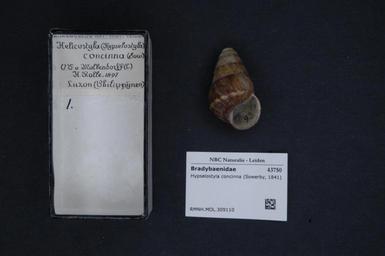 Helicostyla (Hypselostyla)
concinna (Sow.)
H. Rolle. 1897
Luzon (Philippinen)
1.
NBC Naturalis - Leiden
Bradybaenidae 43750
Hypselostyla concinna (Sowerby, 1841)
RMNH.MOL.309110